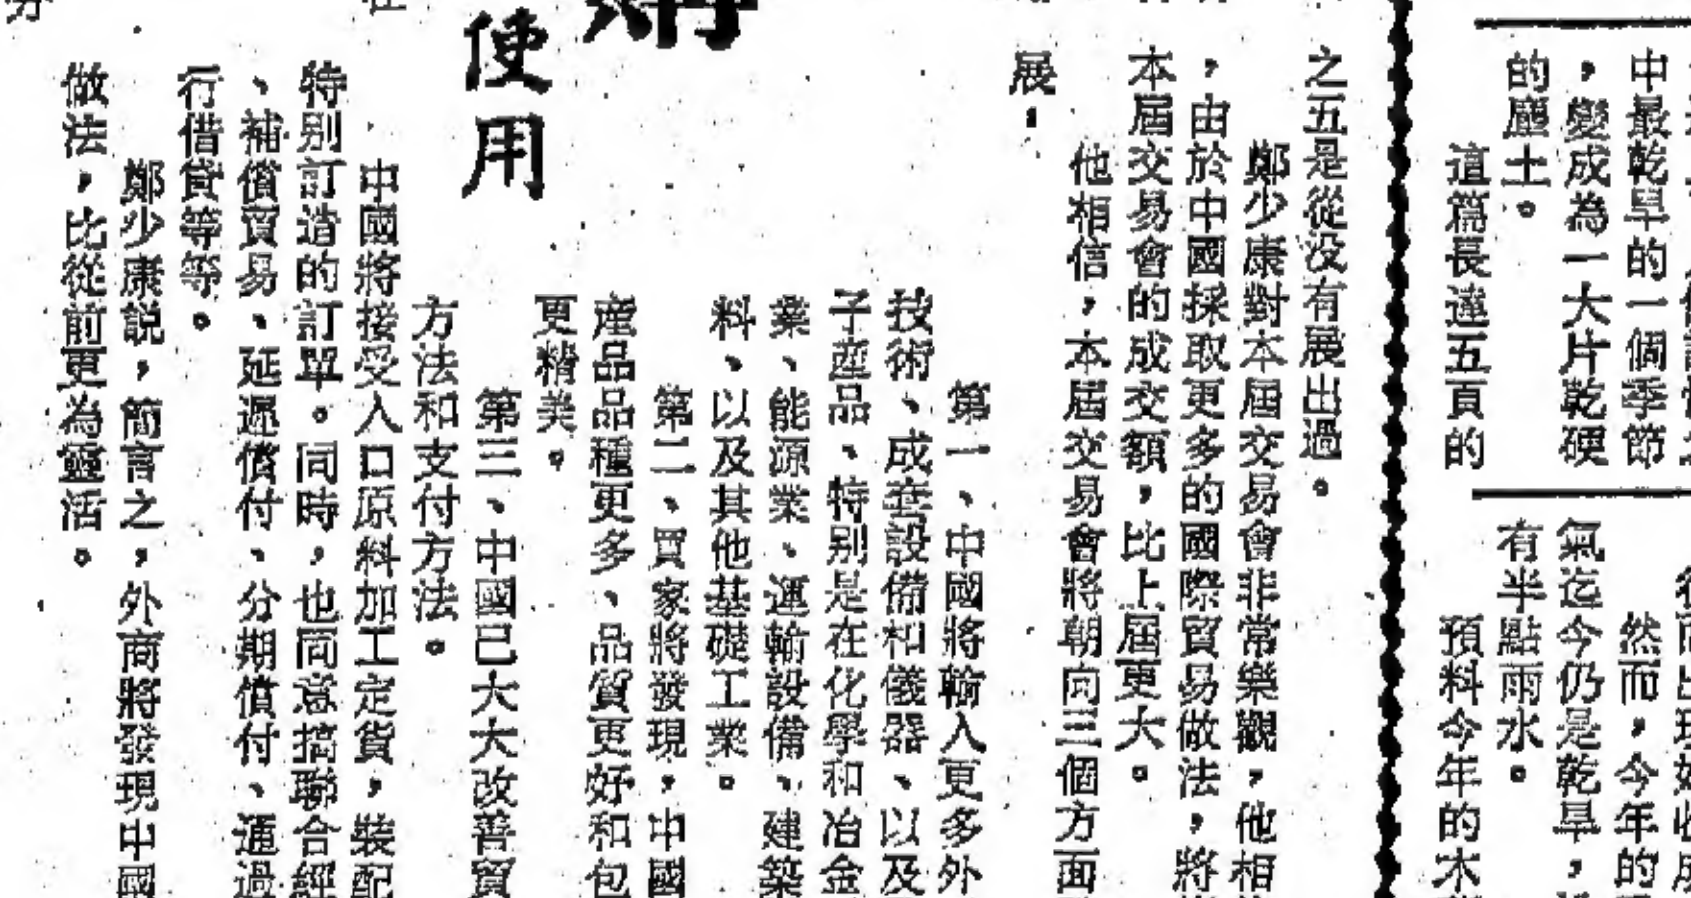 中最乾旱的一個季節
，變成為一大片乾硬
的塵土。
這篇長達五頁的
然而，今年的
氣迄今仍是乾旱，
有半點雨水。
預料今年的木
之五是從没有展出過。
鄭少康對本屆交易會非常樂觀，他相
，由於中國採取更多的國際貿易做法，將
本屆交易會的成交額，比上屆更大。
他相信，本屆交易會將朝向三個方面
展：
第一、中國將輸入更多外
技術、成套設備和儀器、以及
子產品、特别是在化學和冶金
業、能源業、運輸設備、建築
料、以及其他基礎工業。
第二、買家將發現，中國
產品品種更多、品質更好和包
更精美。
使用
第三、中國已大大改善貿
方法和支付方法。
中國將接受入口原料加工定貨，裝配
特别訂造的訂單。同時，也同意搞聯合經
、補償貿易、延遲償付、分期償付、通過
行借貸等等。
鄭少康説，簡言之，外商將發現中國
做法，比從前更為靈活。